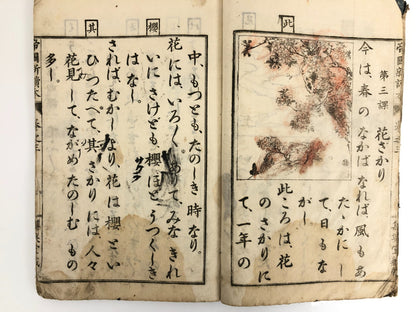 此
第三課　花ざかり
今は、春の なかばなれば、風も あ
たゝかにし
て、日も な
がし。
此ころは、花
のさかりに
て、一年の
櫻
其
中、もつとも、たのしき 時なり。
花には、いろ〱 ありて、みな きれ
いに さけども、櫻ほど うつくしき
サクラ
はなし。
されば、むかしより、花は 櫻 とい
ひつたへて、其 さかりには、人々
花見して、ながめ たのしむ もの
多し。
帝國新讀本